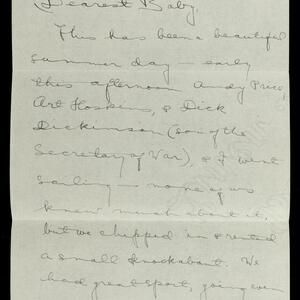 Dearest Baby,
This has been a beautiful
summer day – early
this afternoon Andy Price,
Art Hoskins, & Dick
Dickinson (son of the
Secretary of War), & I went
sailing – none of us
knew much about it,
but we chipped in & rented
a small knockabout. We
had great sport, going over